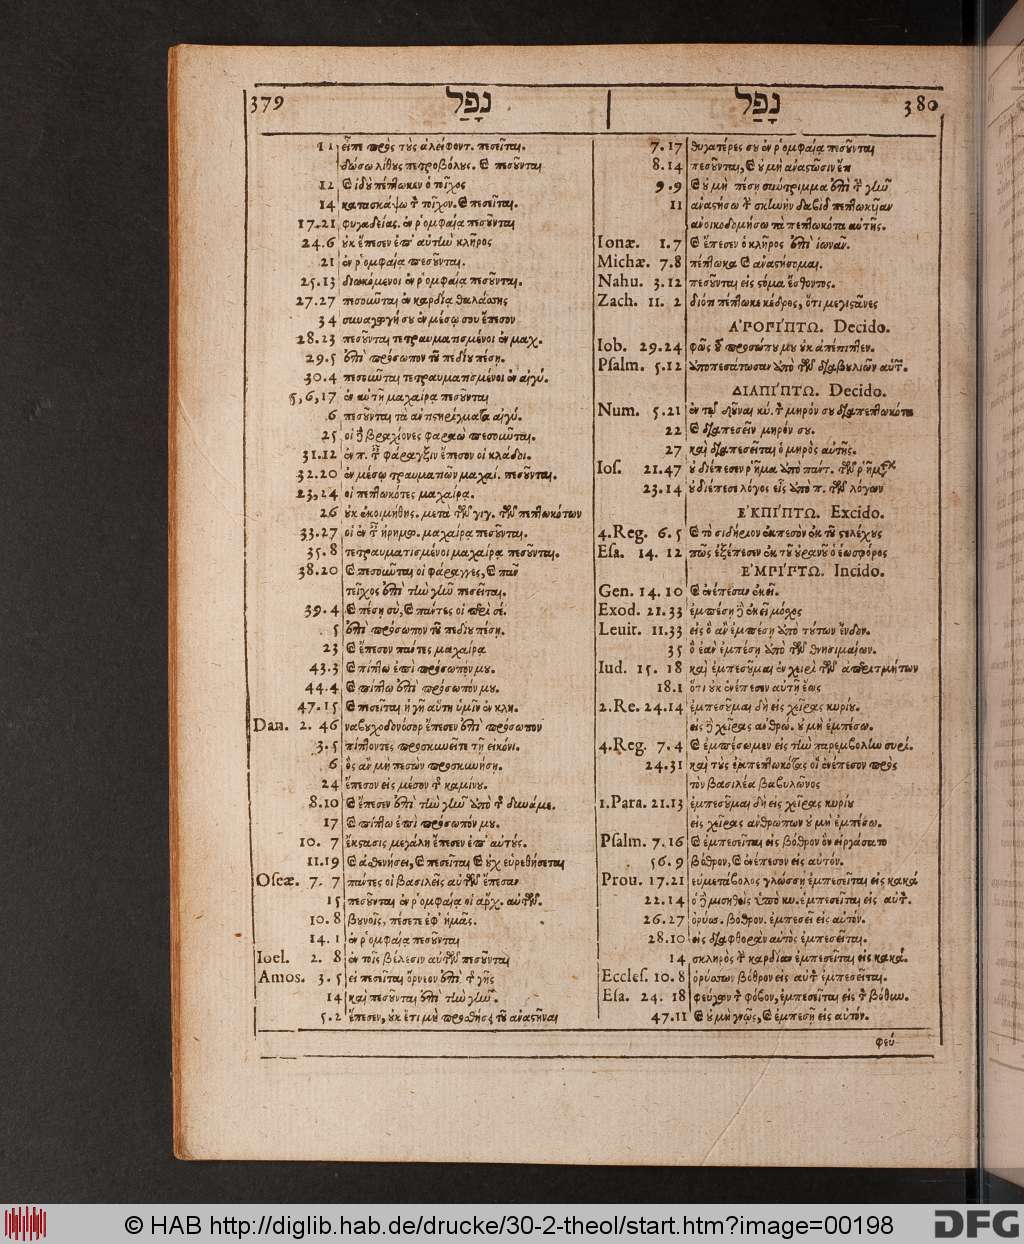 379 נָפַל נָפַל 380
11 εἶπε πρὸς τοὺς ἀλείφοντ. πεσεῖται.
δώσω λίθους πετροβόλους. καὶ πεσοῦνται
12 καὶ ἰδοὺ πέπτωκεν ὁ τοῖχος
14 κατασκάψω τὸν τοῖχον. καὶ πεσεῖται.
17.21 φυγαδείας. ἐν ῥομφαίᾳ πεσοῦνται
24.6 οὐκ ἔπεσεν ἐπ' αὐτὴν κλῆρος
21 ἐν ῥομφαίᾳ πεσοῦνται.
25.13 διωκόμενοι ἐν ῥομφαίᾳ πεσοῦνται.
27.27 πεσοῦνται ἐν καρδίᾳ θαλάσσης
34 συναγωγή σου ἐν μέσῳ σου ἔπεσον
28.23 πεσοῦνται τετραυματισμένοι ἐν μαχ.
29.5 ἐπὶ πρόσωπον τοῦ πεδίου πέσῃ.
30.4 πεσοῦνται τετραυματισμένοι ἐν αἰγύ.
5,6,17 ἐν αὐτῇ μαχαίρᾳ πεσοῦνται
6 πεσοῦνται τὰ ἀντιστηρίγματα αἰγύ.
25 οἱ δὲ βραχίονες φαραὼ πεσοῦνται.
31.12 ἐν π. ταῖς φάραγξιν ἔπεσον οἱ κλάδοι.
32.20 ἐν μέσῳ τραυματιῶν μαχαί. πεσοῦνται.
23,24 οἱ πεπτωκότες μαχαίρᾳ.
26 οὐκ ἐκοιμήθησ. μετὰ τῶν γιγ. τῶν πεπτωκότων
33.27 οἱ ἐν τῇ ἠρημω. μαχαίρᾳ πεσοῦνται.
35.8 τετραυματισμένοι μαχαίρᾳ πεσοῦνται.
38.20 καὶ πεσοῦνται οἱ φάραγγες, καὶ πᾶν
τεῖχος ἐπὶ τὴν γῆν πεσεῖται.
39.4 καὶ πέσῃ σὺ, καὶ πάντες οἱ περὶ σέ.
5 ἐπὶ πρόσωπον τοῦ πεδίου πέσῃ.
23 καὶ ἔπεσον πάντες μαχαίρᾳ
43.3 καὶ πίπτω ἐπὶ πρόσωπόν μου.
44.4 καὶ πίπτω ἐπὶ πρόσωπόν μου.
47.15 καὶ πεσεῖται ἡ γῆ αὕτη ὑμῖν ἐν κλη.
Dan. 2. 46 ναβουχοδονόσορ ἔπεσεν ἐπὶ πρόσωπον
3.5 πίπτοντες προσκυνεῖτε τῇ εἰκόνι.
6 ὃς ἂν μὴ πεσὼν προσκυνήσῃ.
24 ἔπεσον εἰς μέσον τῆς καμίνου.
8.10 καὶ ἔπεσεν ἐπὶ τὴν γῆν ἀπὸ τῆς δυνάμε.
17 καὶ πίπτω ἐπὶ πρόσωπόν μου.
10. 7 ἔκστασις μεγάλη ἔπεσεν ἐπ' αὐτούς.
11.19 καὶ ἀσθενήσει, καὶ πεσεῖται καὶ οὐχ εὑρεθήσεται
Oseæ. 7. 7 πάντες οἱ βασιλεῖς αὐτῶν ἔπεσαν
15 πεσοῦνται ἐν ῥομφαίᾳ οἱ ἄρχ. αὐτῶν.
10.8 βουνοῖς, πέσετε ἐφ' ἡμᾶς.
14.1 ἐν ῥομφαίᾳ πεσοῦνται
Ioel. 2. 8 ἐν τοῖς βέλεσιν αὐτῶν πεσοῦνται
Amos. 3. 5 εἰ πεσεῖται ὄρνεον ἐπὶ τῆς γῆς
14 καὶ πεσοῦνται ἐπὶ τὴν γῆν.
5.2 ἔπεσεν, οὐκ ἔτι μὴ προσθήσῃ τοῦ ἀναστῆναι
7.17 θυγατέρες σου ἐν ῥομφαίᾳ πεσοῦνται
8.14 πεσοῦνται, καὶ οὐ μὴ ἀναστῶσιν ἔτι
9.9 καὶ οὐ μὴ πέσῃ σύντριμμα ἐπὶ τὴν γῆν
11 ἀναστήσω τὴν σκηνὴν δαβὶδ πεπτωκυῖαν
ἀνοικοδομήσω τὰ πεπτωκότα αὐτῆς.
Ionæ. 1.7 καὶ ἔπεσεν ὁ κλῆρος ἐπὶ ἰωνᾶν.
Michæ. 7.8 πέπτωκα καὶ ἀναστήσομαι.
Nahu. 3.12 πεσοῦνται εἰς στόμα ἔσθοντος.
Zach. 11. 2 διότι πέπτωκε κέδρος, ὅτι μεγιστᾶνες
ΑΠΟΠΙΠΤΩ. Decido.
Iob. 29.24 φῶς τοῦ προσώπου μου οὐκ ἀπέπιπτεν.
Psalm. 5.12 ἀποπεσάτωσαν ἀπὸ τῶν διαβουλιῶν αὐτῶν.
ΔΙΑΠΙΠΤΩ. Decido.
Num. 5.21 ἐν τῷ δοῦναι κύ. τὸν μηρόν σου διαπεπτωκότα
22 καὶ διαπεσεῖν μηρόν σου.
27 καὶ διαπεσεῖται ὁ μηρὸς αὐτῆς.
Ios. 21.47 οὐ διέπεσεν ῥῆμα ἀπὸ πάντ. τῶν ῥημάτων
23.14 οὐ διέπεσε λόγος εἷς ἀπὸ π. τῶν λόγων
ΕΚΠΙΠΤΩ. Excido.
4.Reg. 6.5 καὶ τὸ σιδήριον ἐκπεσὸν ἐκ τοῦ στελέχους
Esa. 14. 12 πῶς ἐξέπεσεν ἐκ τοῦ οὐρανοῦ ὁ ἑωσφόρος
ΕΜΠΙΠΤΩ. Incido.
Gen. 14.10 καὶ ἐνέπεσαν ἐκεῖ.
Exod. 21.33 ἐμπέσῃ δὲ ἐκεῖ μόσχος
Leuit. 11.33 εἰς ὃ ἂν ἐμπέσῃ ἀπὸ τούτων ἔνδον.
35 ὃ ἐὰν ἐμπέσῃ ἀπὸ τῶν θνησιμαίων.
Iud. 15. 18 καὶ ἐμπεσοῦμαι ἐν χειρὶ τῶν ἀπεριτμήτων
18.1 ὅτι οὐκ ἐνέπεσεν αὐτῇ ἕως
2.Re. 24.14 ἐμπεσοῦμαι δὴ εἰς χεῖρας κυρίου.
εἰς δὲ χεῖρας ἀνθρω. οὐ μὴ ἐμπέσω.
4.Reg. 7.4 καὶ ἐμπέσωμεν εἰς τὴν παρεμβολὴν συρί.
24.31 καὶ τοὺς ἐμπεπτωκότας οἳ ἐνέπεσον πρὸς
τὸν βασιλέα βαβυλῶνος
1.Para. 21.13 ἐμπεσοῦμαι δὴ εἰς χεῖρας κυρίου
εἰς χεῖρας ἀνθρώπων οὐ μὴ ἐμπέσω.
Psalm. 7.16 καὶ ἐμπεσεῖται εἰς βόθρον ὃν εἰργάσατο
56.9 βόθρον, καὶ ἐνέπεσον εἰς αὐτόν.
Prou. 17.21 εὐμετάβολος γλώσσῃ ἐμπεσεῖται εἰς κακά
22.14 ὁ δὲ μισηθεὶς ὑπὸ κυ. ἐμπεσεῖται εἰς αὐτόν.
26.27 ὀρύσσ. βόθρον. ἐμπεσεῖ εἰς αὐτόν.
28.10 εἰς διαφθορὰν αὐτὸς ἐμπεσεῖται.
14 σκληρὸς τὴν καρδίαν ἐμπεσεῖται εἰς κακά.
Eccles. 10.8 ὀρύσσων βόθρον εἰς αὐτὸν ἐμπεσεῖται.
Esa. 24. 18 φεύγων τὸν φόβον, ἐμπεσεῖται εἰς τὸν βόθυν.
47.11 καὶ οὐ μὴ γνῷς, καὶ ἐμπέσῃ εἰς αὐτόν.
φεύ
© HAB http://diglib.hab.de/drucke/30-2-theol/start.htm?image=00198
DFG